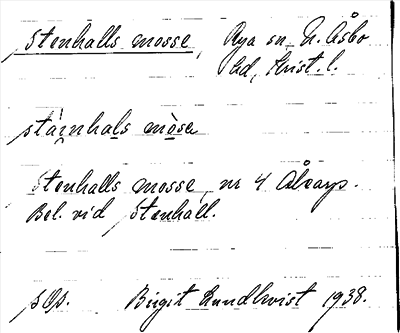 Stenhalls mosse, Rya sn, N. Åsbo
hd, Krist. l.
stä̀i̯nhals mòse
Stenhalls mosse, nr 4 Älvarp.
Bel. vid Stenhall.
Birgit Lundkvist 1938.